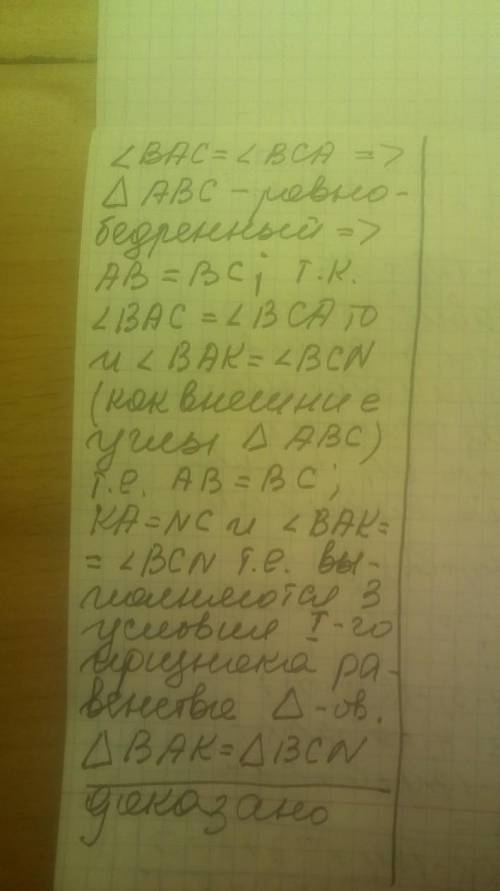 ∠BAC = ∠BCA =>
Δ ABC - равно-
бедренный =>
AB = BC; т.к.
∠BAC = ∠BCA то
и ∠BAK = ∠BCN
(как внешние
углы Δ ABC)
т.е. AB = BC;
KA = NC и ∠BAK =
= ∠BCN т.е. вы-
полняются 3
условия I-го
признака ра-
венства Δ-ов.
Δ BAK = Δ BCN
доказано